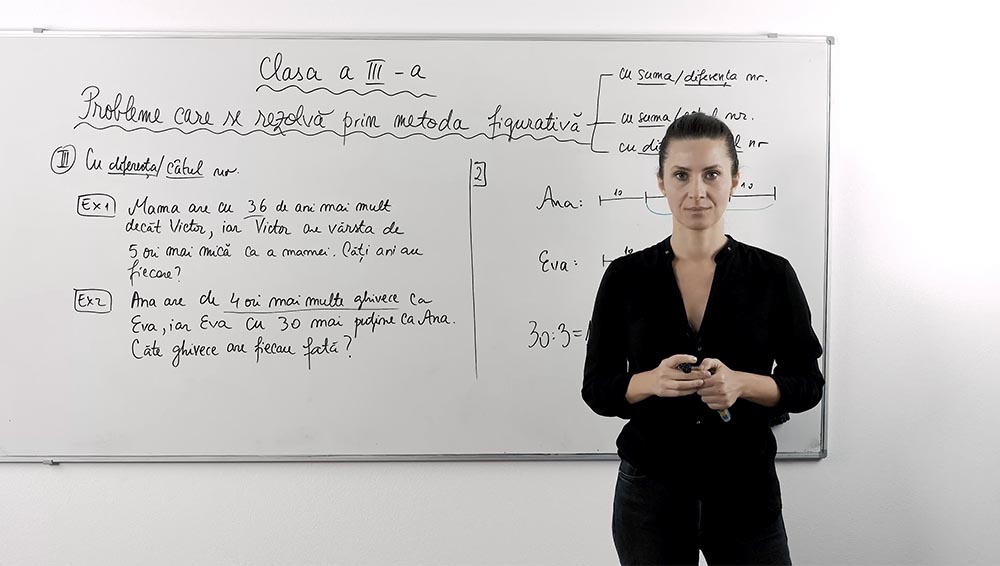 Clasa a III-a
Probleme care se rezolvă prin metoda figurativă
cu suma/diferența nr.
cu suma/ nr.
cu nr
III Cu diferența/câtul nr.
Ex1 Mama are cu 36 de ani mai mult
decât Victor, iar Victor are vârsta de
5 ori mai mică ca a mamei. Câți ani au
fiecare?
Ex2 Ana are de 4 ori mai multe ghivece ca
Eva, iar Eva cu 30 mai puține ca Ana.
Câte ghivece are fiecare fată?
2
Ana: 10 10
Eva: 10
30:3=